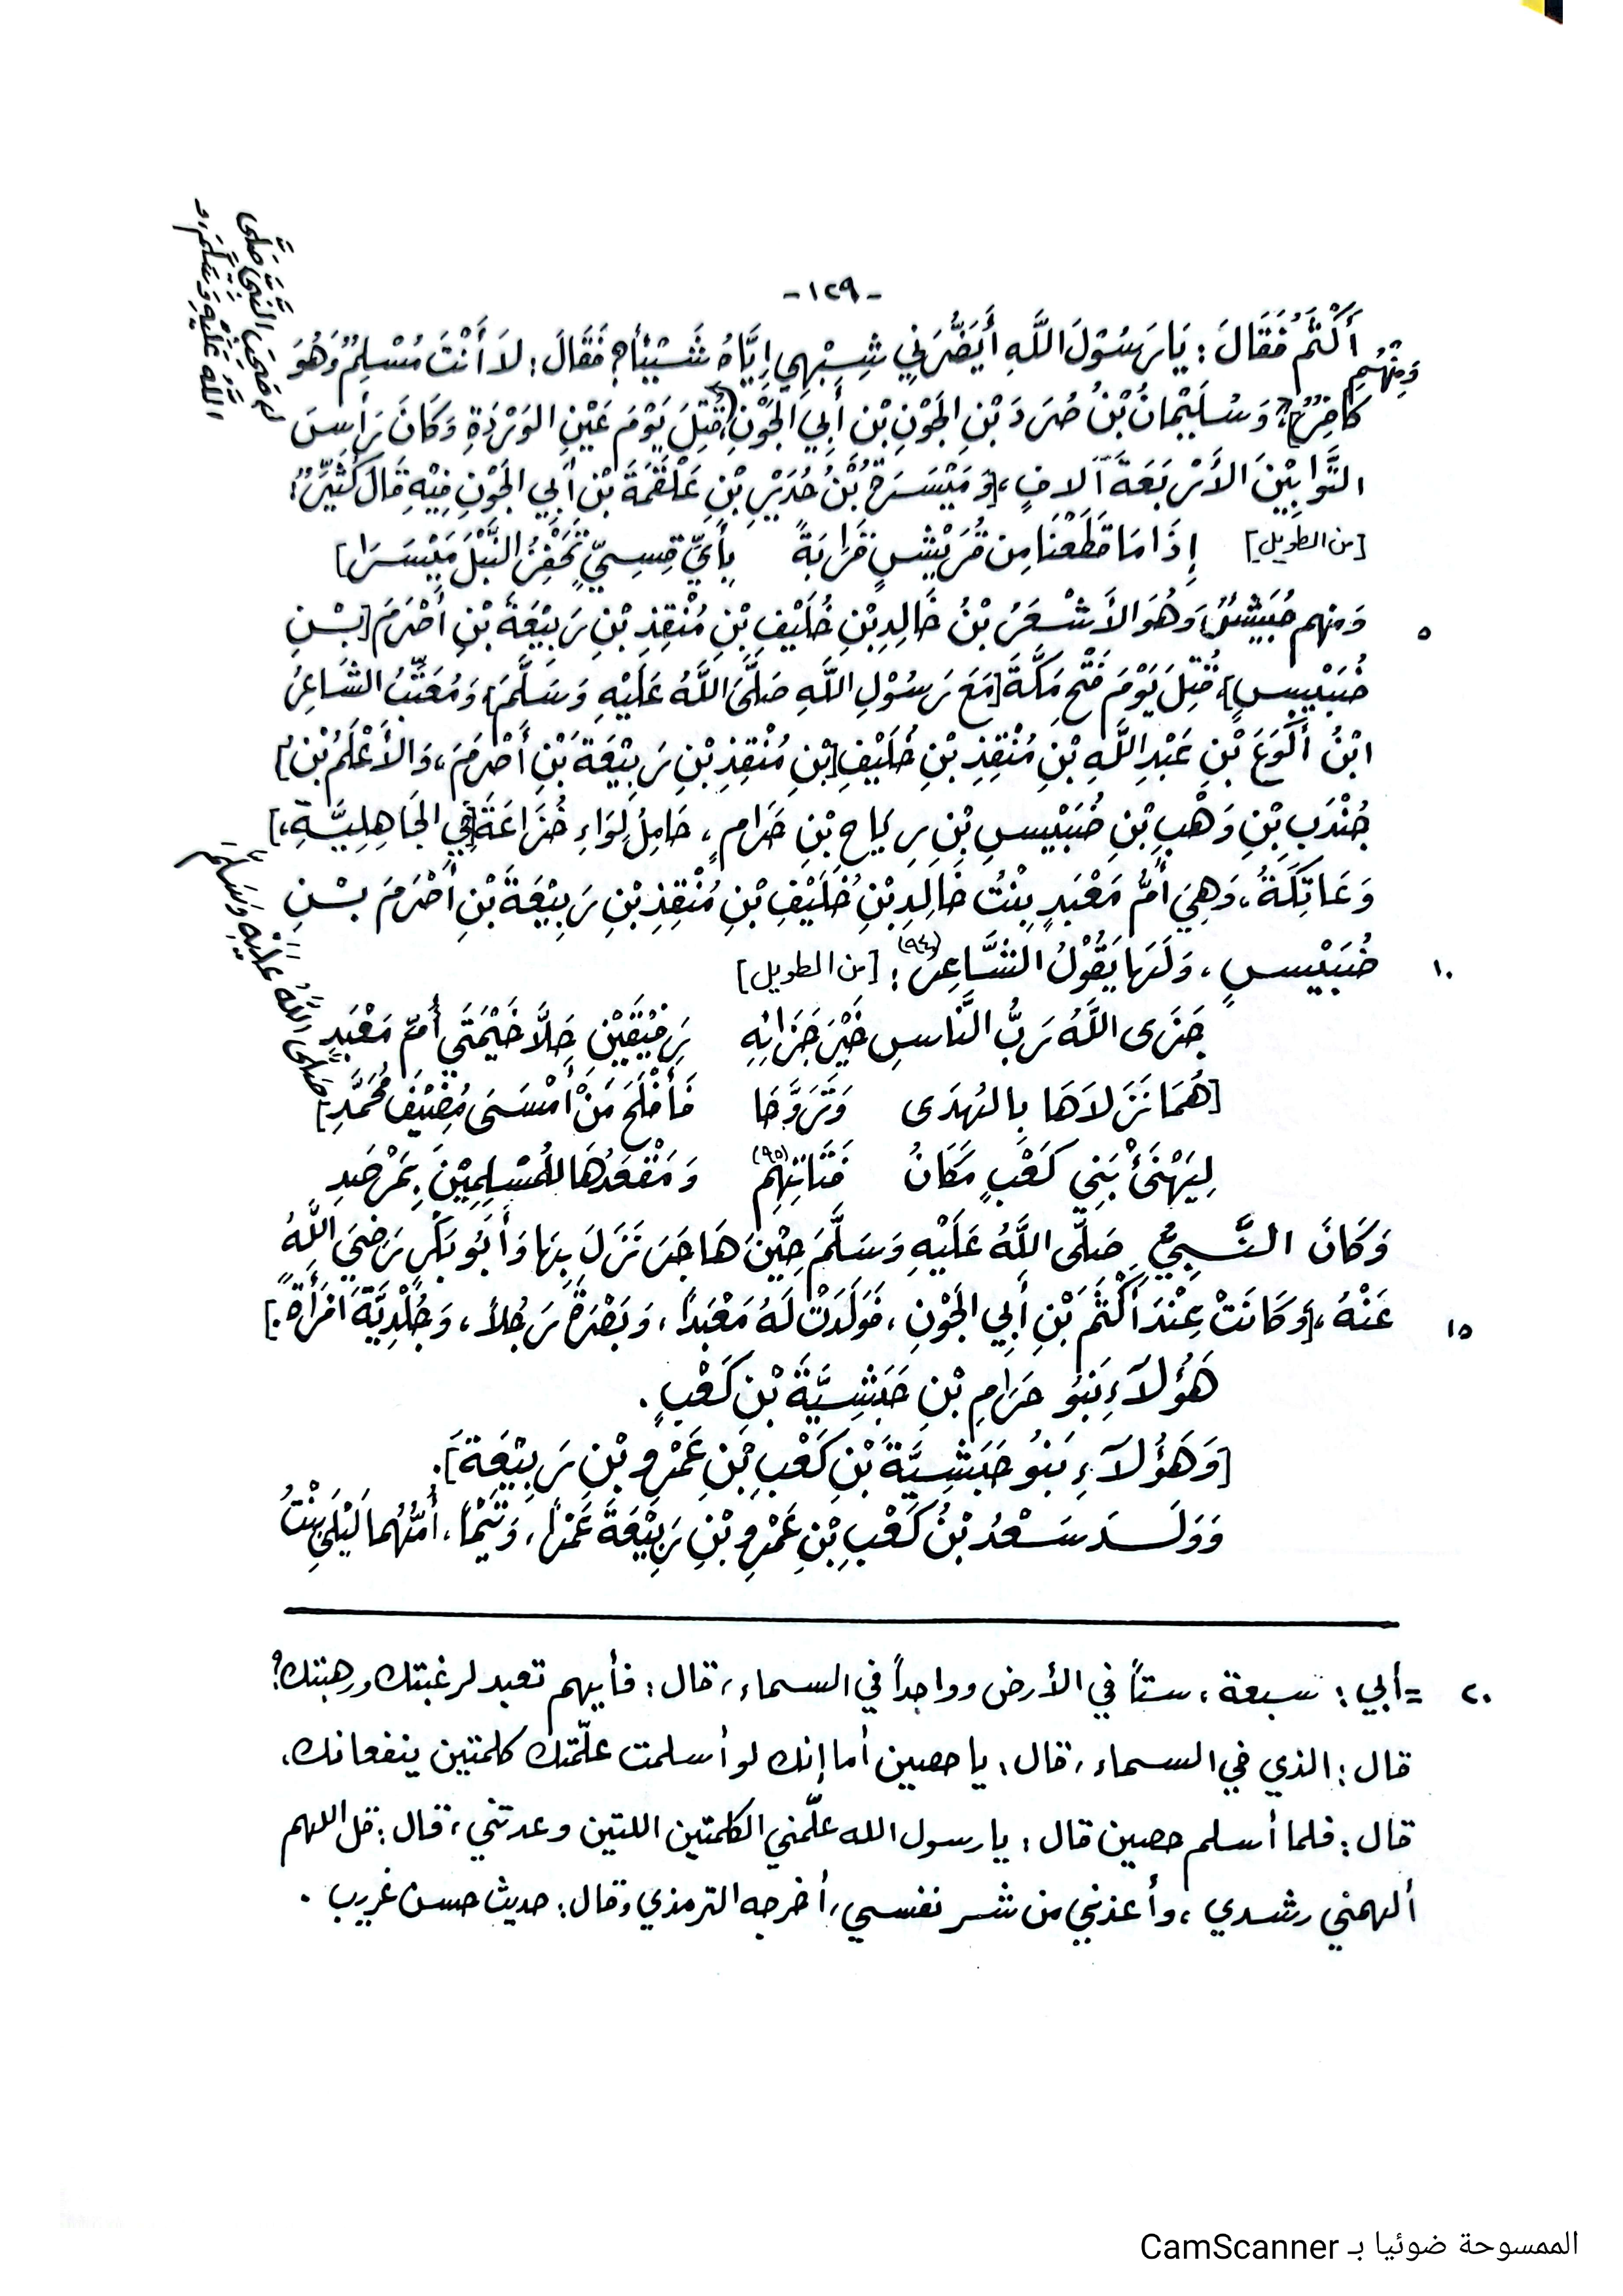 -١٢٩-
أَكْثَمُ فَقَالَ: يَا رَسُوْلَ اللَّهِ أَيَضُرُّنِي شِبْهِي إِيَّاهُ شَيْئاً؟ فَقَالَ: لاَ أَنْتَ مُسْلِمٌ وَهُوَ
وَمِنْهُم
كَافِرٌ]؛ وَسُلَيْمَانُ بْنُ صُرَدَ بْنِ الجَوْنِ بْنِ أَبِي الجَوْنِ، قُتِلَ يَوْمَ عَيْنِ الوَرْدَةِ وَكَانَ رَأْسَ
لَهُ صَحِبَ النَّبِيَّ صَلَّى
اللَّهُ عَلَيْهِ وَسَلَّمَ، وَ
التَّوَّابِيْنَ الأَرْبَعَةَ آلافٍ، [وَمَيْسَرَةُ بْنُ حُدَيْرِ بْنِ عَلْقَمَةَ بْنِ أَبِي الجَوْنِ فِيْهِ قَالَ كُثَيِّرٌ:
[من الطويل] إِذَا مَا قَطَعْنَا مِن قُرَيْشٍ قَرَابَةً بِأَيِّ قِسِيٍّ تَحْفِزُ النَّبْلَ مَيْسَرَا]
٥ وَمِنهم حُبَيْشٌ، وَهُوَ الأَشْعَرُ بْنُ خَالِدِ بْنِ خُلَيْفِ بْنِ مُنْقِذِ بْنِ رَبِيْعَةَ بْنِ أَصْرَمَ [بْنِ
ضُبَيْسٍ]، قُتِلَ يَوْمَ فَتْحِ مَكَّةَ [مَعَ رَسُوْلِ اللَّهِ صَلَّى اللَّهُ عَلَيْهِ وَسَلَّمَ] وَمُعَتِّبُ الشَّاعِرُ
ابْنُ أَكْوَعَ بْنِ عَبْدِ اللَّهِ بْنِ مُنْقِذِ بْنِ خُلَيْفِ [بْنِ مُنْقِذِ بْنِ رَبِيْعَةَ بْنِ أَصْرَمَ، وَالأَعْلَمُ بْنُ]
جُنْدَبِ بْنِ وَهْبِ بْنِ ضُبَيْسِ بْنِ رِيَاحِ بْنِ حَرَامٍ، حَامِلُ لِوَاءِ خُزَاعَةَ [فِي الجَاهِلِيَّةِ،]
وَعَاتِكَةُ، وَهِيَ أُمُّ مَعْبَدٍ بِنْتُ خَالِدِ بْنِ خُلَيْفِ بْنِ مُنْقِذِ بْنِ رَبِيْعَةَ بْنِ أَصْرَمَ بْنِ
١٠ ضُبَيْسٍ، وَلَهَا يَقُوْلُ الشَّاعِرُ (٩٤): [من الطويل]
جَزَى اللَّهُ رَبُّ النَّاسِ خَيْرَ جَزَائِهِ رَفِيْقَيْنِ حَلَّا خَيْمَتَي أُمِّ مَعْبَدِ
[هُمَا نَزَلاَهَا بِالهُدَى وَتَرَوَّحَا فَأَفْلَحَ مَنْ أَمْسَى مُضِيْفَ مُحَمَّدِ]
صَلَّى اللَّهُ عَلَيْهِ وَسَلَّمَ
لِيَهْنَئْ بَنِي كَعْبٍ مَكَانُ فَتَاتِهِم (٩٥) وَمَقْعَدُهَا لِلْمُسْلِمِيْنَ بِمَرْصَدِ
وَكَانَ النَّبِيُّ صَلَّى اللَّهُ عَلَيْهِ وَسَلَّمَ حِيْنَ هَاجَرَ نَزَلَ بِهَا وَأَبُو بَكْرٍ رَضِيَ اللَّهُ
١٥ عَنْهُ، [وَكَانَتْ عِنْدَ أَكْثَمَ بْنِ أَبِي الجَوْنِ، فَوَلَدَتْ لَهُ مَعْبَداً، وَبَصْرَةَ رَجُلاً، وَجُلْدِيَّةَ امْرَأَةً.]
هَؤُلاَءِ بَنُو حَرَامِ بْنِ حَبَشِيَّةَ بْنِ كَعْبٍ.
[وَهَؤُلاَءِ بَنُو حَبَشِيَّةَ بْنِ كَعْبِ بْنِ عَمْرِو بْنِ رَبِيْعَةَ].
وَوَلَدَ سَعْدُ بْنُ كَعْبِ بْنِ عَمْرِو بْنِ رَبِيْعَةَ عَمْراً، وَتَيْماً، أُمُّهُما لَيْلَى بِنْتُ
٢٠ =أبي: سبعة، ستاً في الأرض وواحداً في السماء، قال: فأيهم تعبد لرغبتك ورهبتك؟
قال: الذي في السماء، قال: يا حصين أما إنك لو أسلمت علّمتك كلمتين ينفعانك،
قال: فلما أسلم حصين قال: يا رسول الله علّمني الكلمتين اللتين وعدتني، قال: قل اللهم
ألهمني رشدي، وأعذني من شر نفسي، أخرجه الترمذي وقال: حديث حسن غريب.
الممسوحة ضوئيا بـ CamScanner